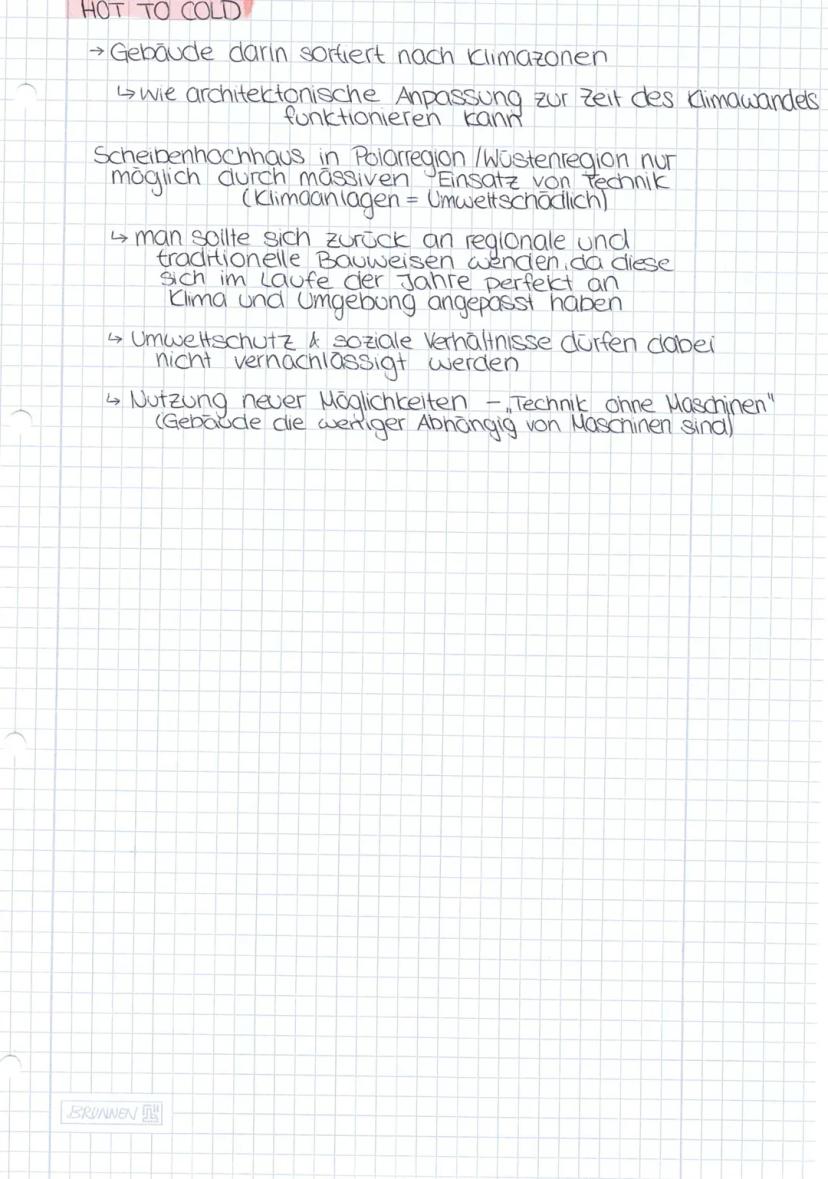 HOT TO COLD
→ Gebäude darin sortiert nach Klimazonen
↳ wie architektonische Anpassung zur Zeit des Klimawandels
funktionieren kann
Scheibenhochhaus in Polarregion / Wüstenregion nur
möglich durch massiven Einsatz von Technik
(Klimaanlagen = Umweltschädlich)
↳ man sollte sich zurück an regionale und
traditionelle Bauweisen wenden, da diese
sich im Laufe der Jahre perfekt an
Klima und Umgebung angepasst haben
↳ Umweltschutz & soziale Verhältnisse dürfen dabei
nicht vernachlässigt werden
↳ Nutzung neuer Möglichkeiten – „Technik ohne Maschinen"
(Gebäude die weniger Abhängig von Maschinen sind)
BRUNNEN